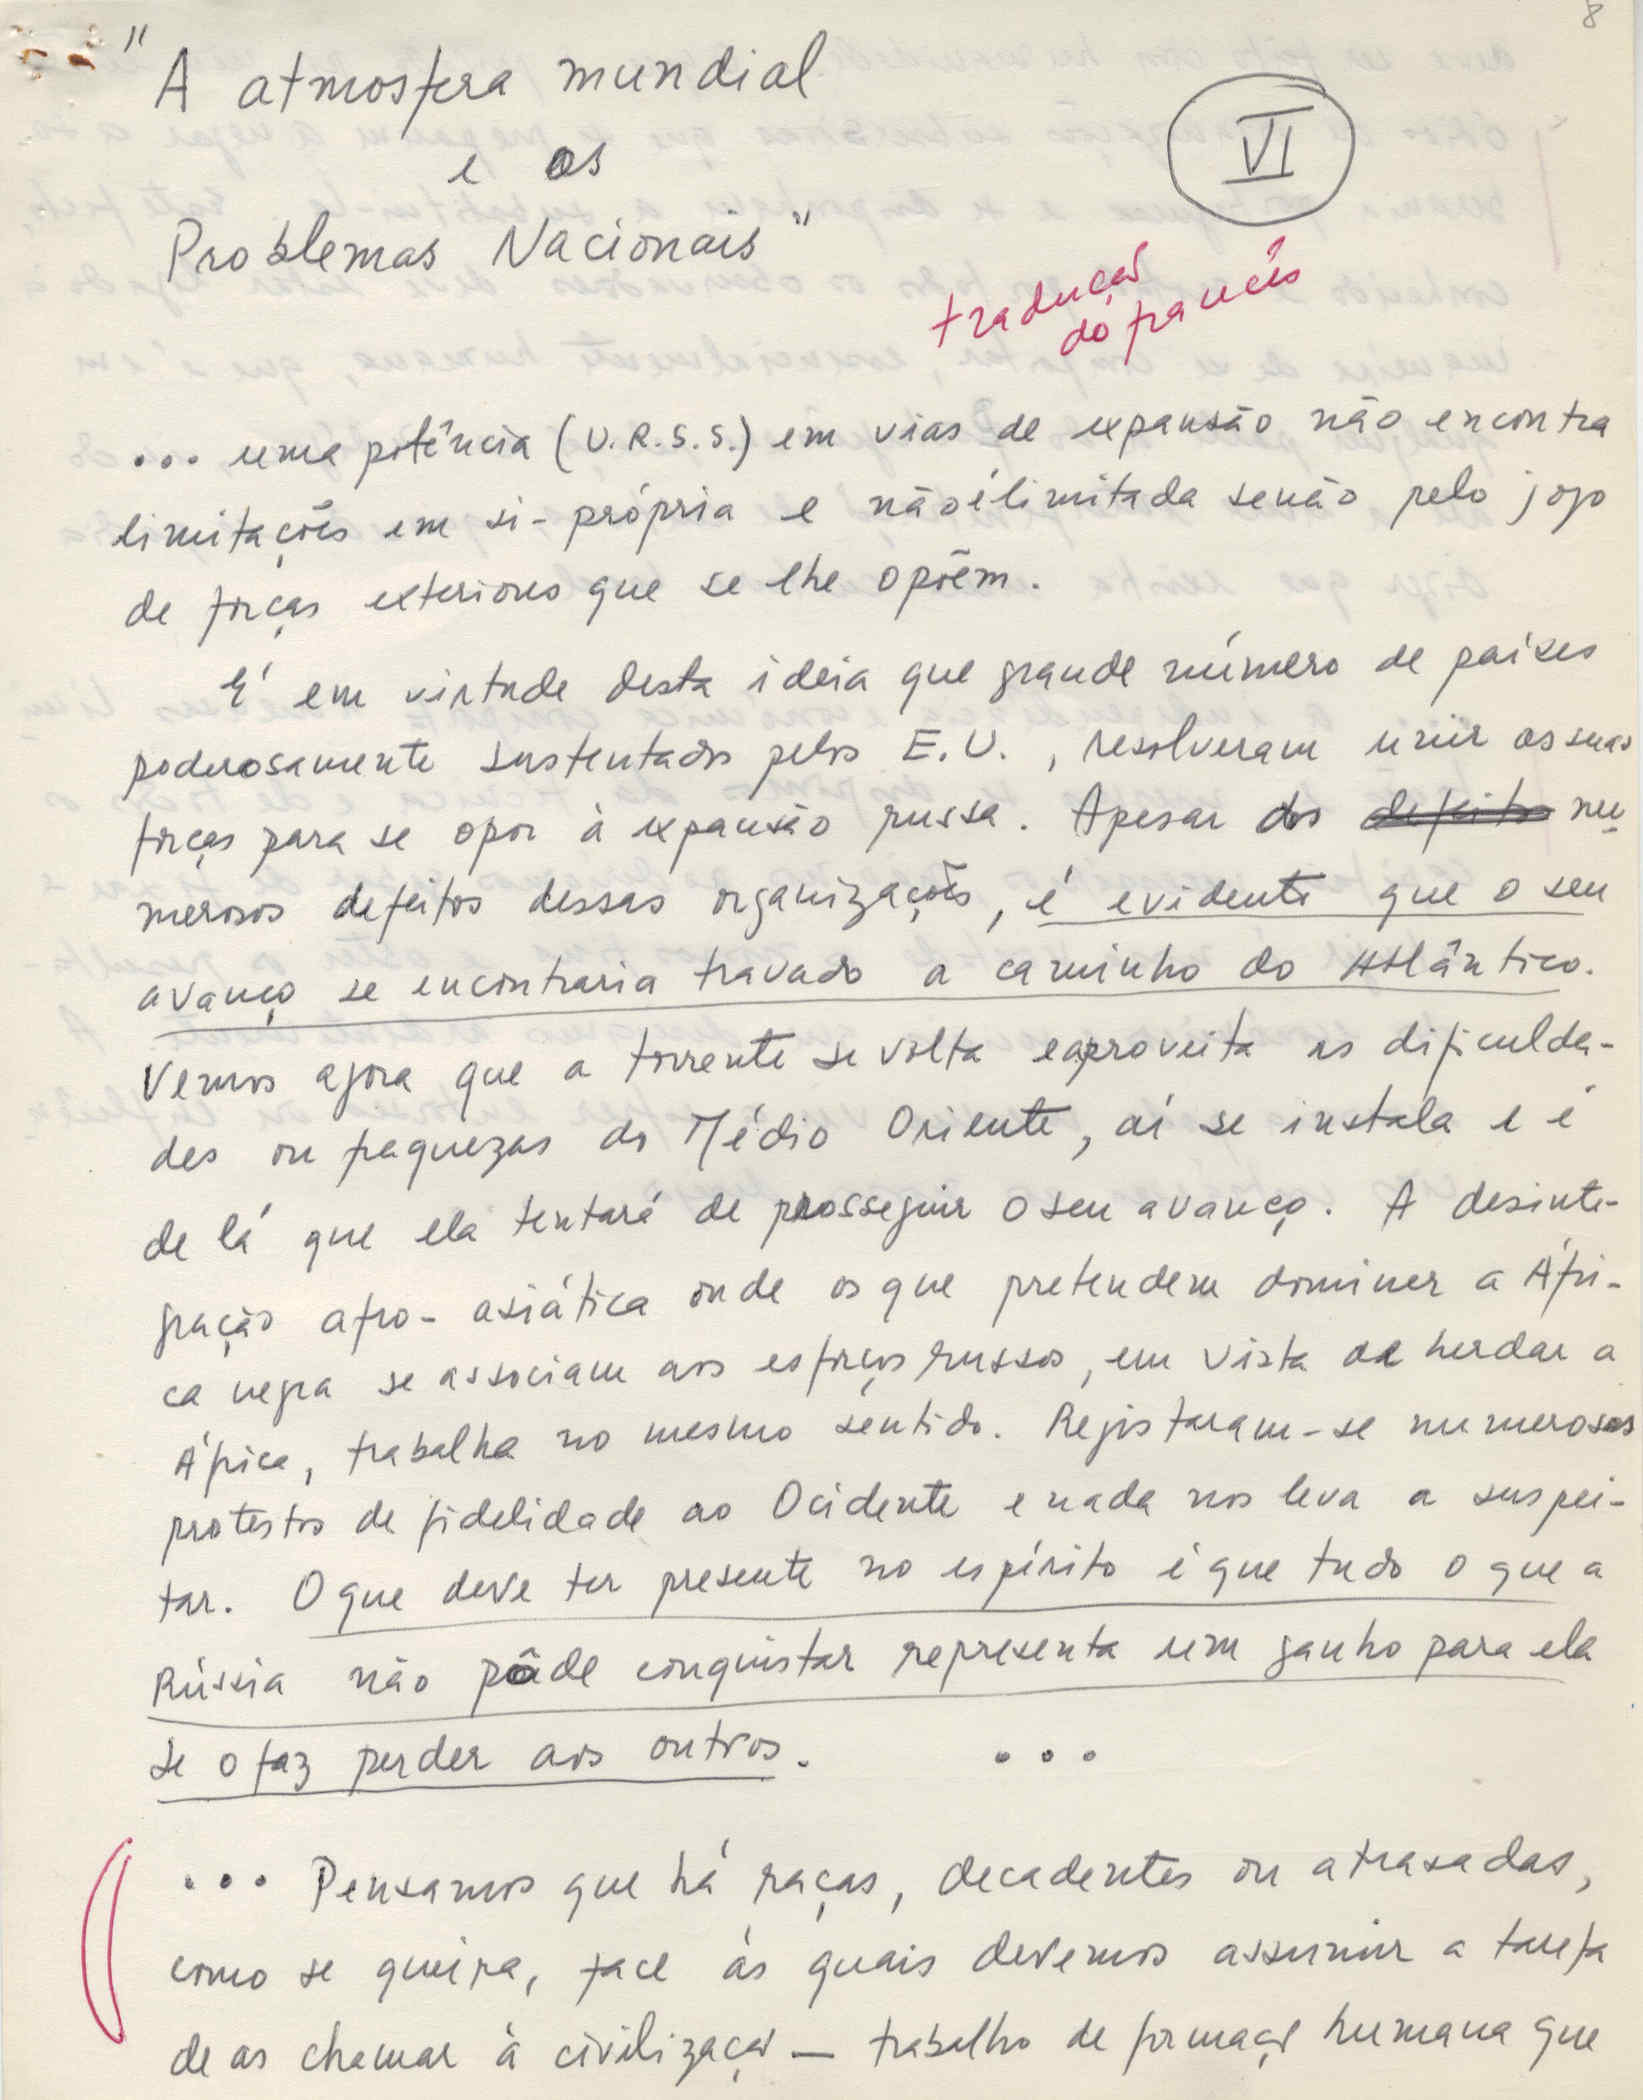 8
"A atmosfera mundial
e os
Problemas Nacionais"
VI
tradução
do francês
... uma potência (U.R.S.S.) em vias de expansão não encontra
limitações em si-própria e não é limitada senão pelo jogo
de forças exteriores que se lhe opõem.
É em virtude desta ideia que grande número de países
poderosamente sustentados pelos E.U., resolveram unir as suas
forças para se opor à expansão russa. Apesar dos defeitos nu
merosos defeitos dessas organizações, é evidente que o seu
avanço se encontraria travado a caminho do Atlântico.
Vemos agora que a torrente se volta e aproveita as dificulda-
des ou fraquezas do Médio Oriente, aí se instala e é
de lá que ela tentará de prosseguir o seu avanço. A desinte-
gração afro-asiática onde os que pretendem dominar a Áfri-
ca negra se associam aos esforços russos, em vista de herdar a
África, trabalha no mesmo sentido. Registaram-se numerosos
protestos de fidelidade ao Ocidente e nada nos leva a suspei-
tar. O que deve ter presente no espírito é que tudo o que a
Rússia não pôde conquistar representa um ganho para ela
se o faz perder aos outros. ...
... Pensamos que há raças, decadentes ou atrasadas,
como se queira, face às quais devemos assumir a tarefa
de as chamar à civilização — trabalho de formação humana que